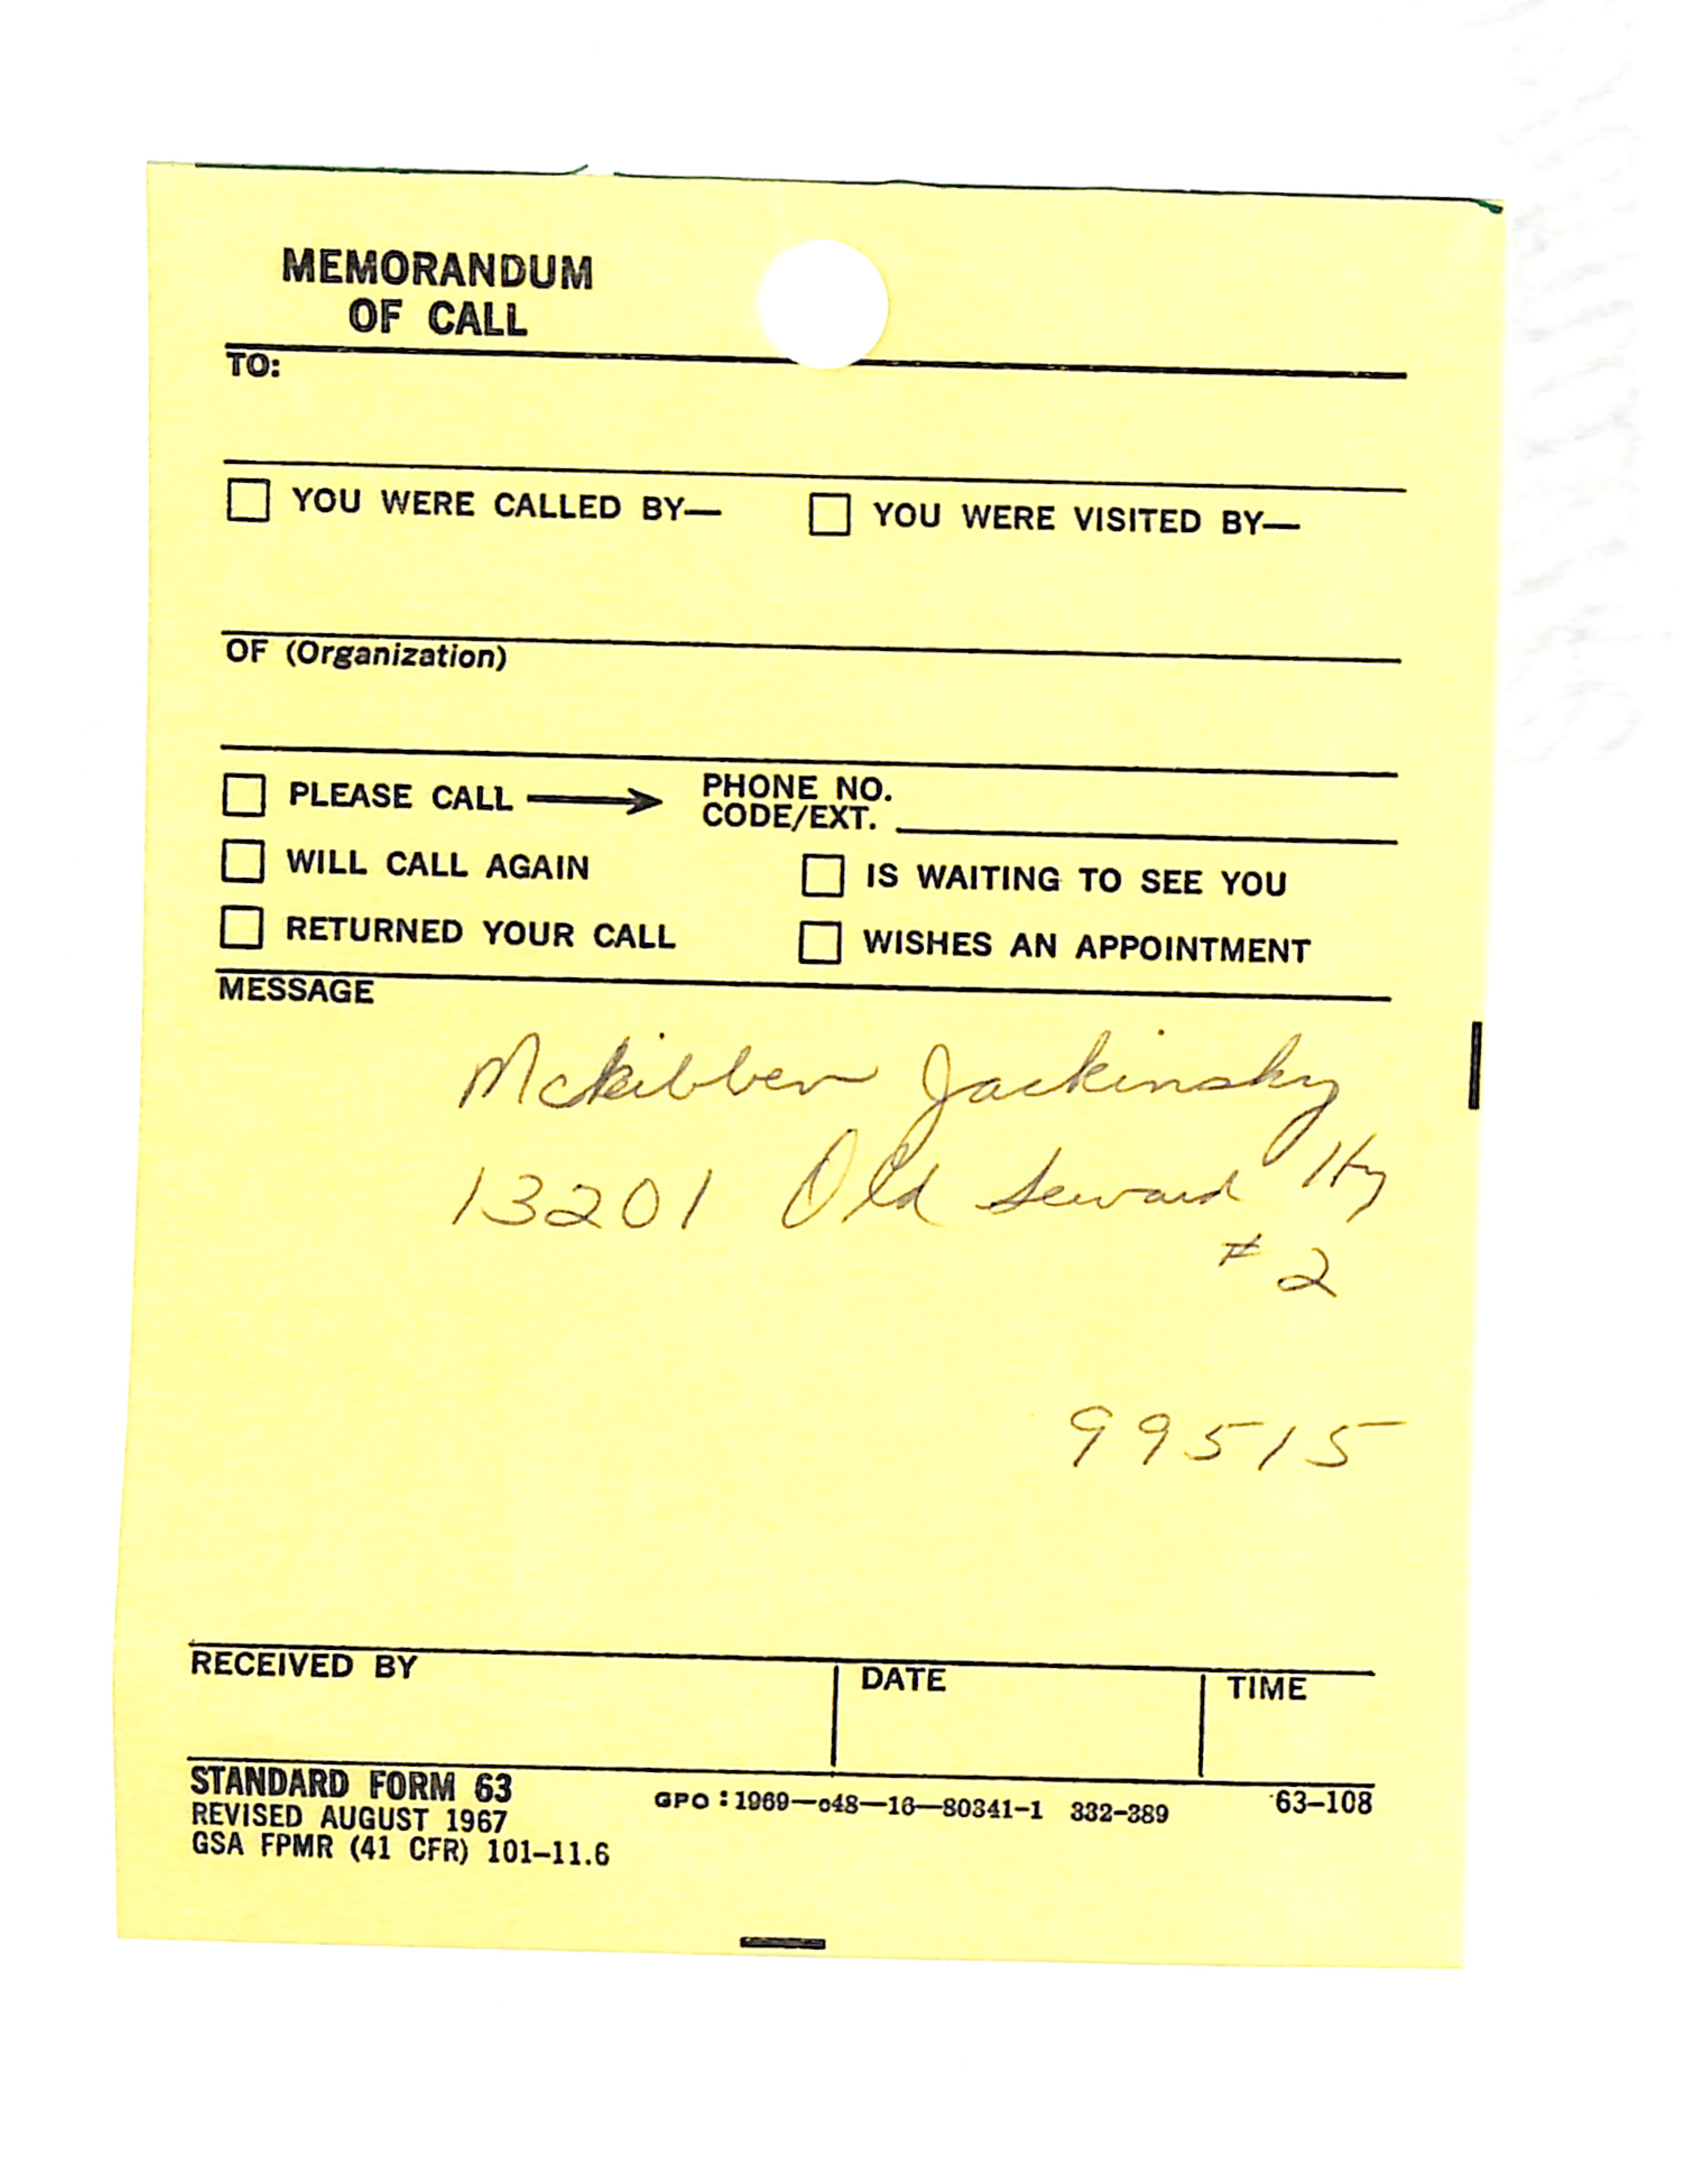 MEMORANDUM
OF CALL
TO:
YOU WERE CALLED BY— YOU WERE VISITED BY—
OF (Organization)
PLEASE CALL → PHONE NO. CODE/EXT.
WILL CALL AGAIN IS WAITING TO SEE YOU
RETURNED YOUR CALL WISHES AN APPOINTMENT
MESSAGE
McKibben Jackinsky
13201 Old Seward Hy
# 2
99515
RECEIVED BY DATE TIME
STANDARD FORM 63 GPO : 1969—o48—16—80341-1 332-389 63-108
REVISED AUGUST 1967
GSA FPMR (41 CFR) 101-11.6